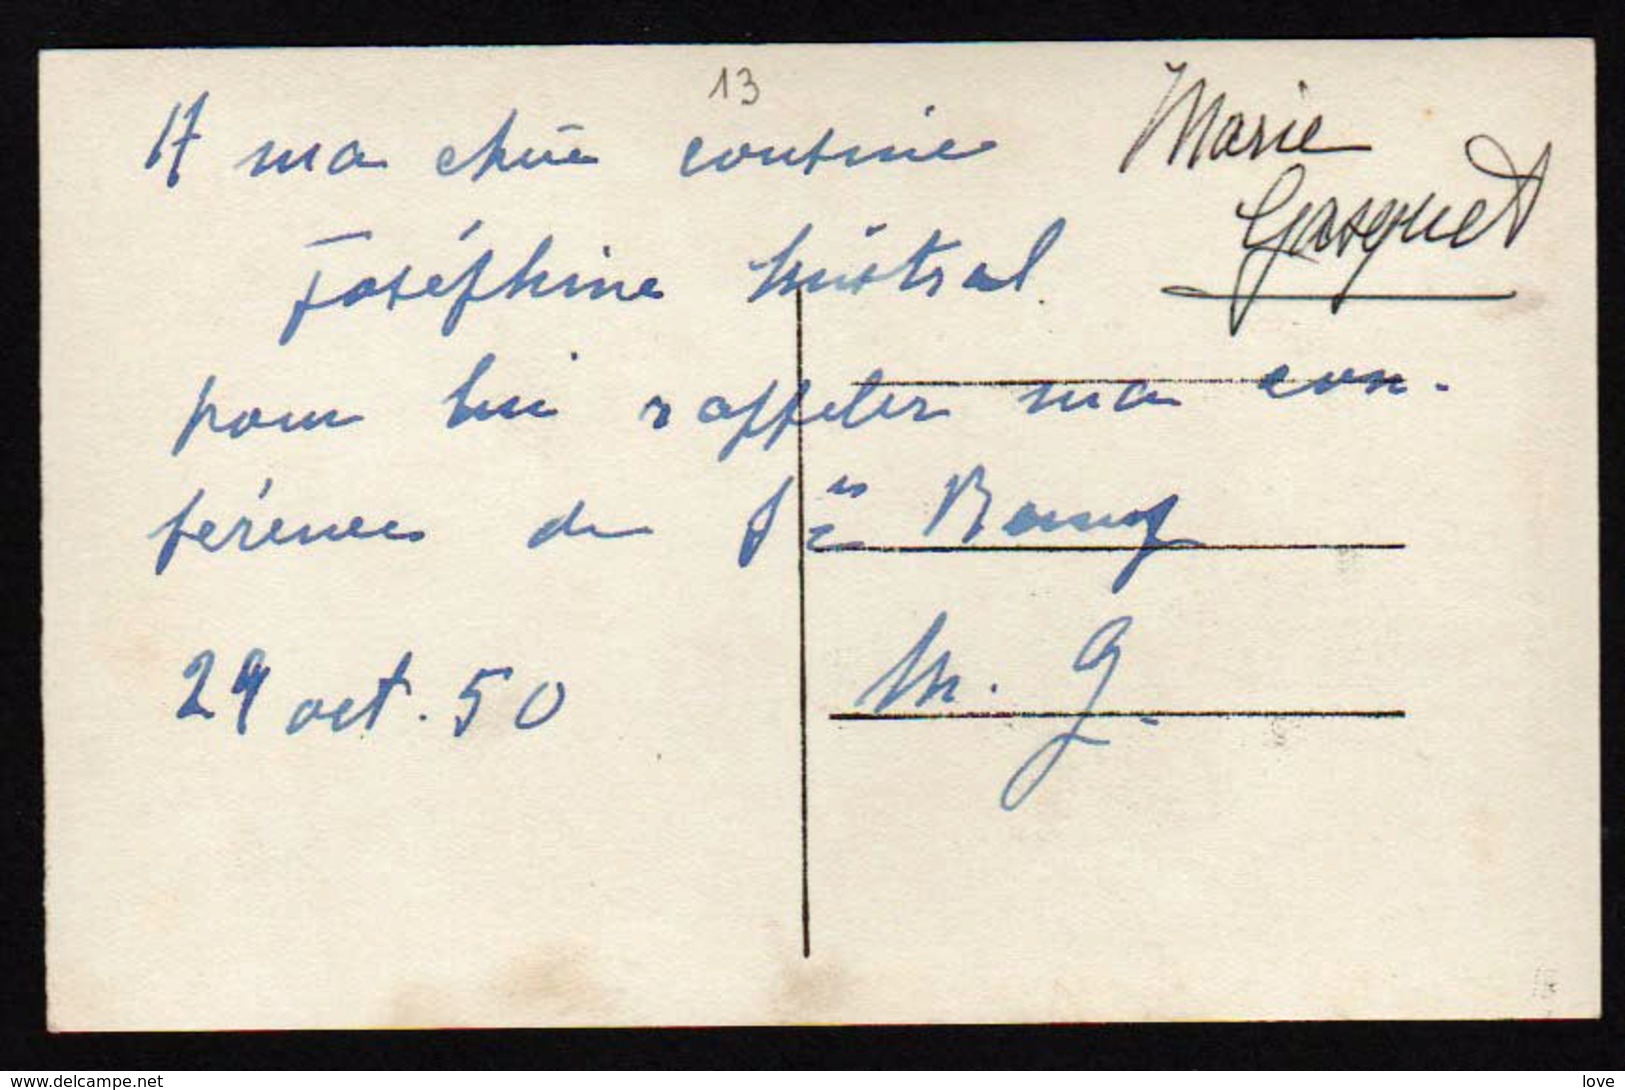 13
A ma chère cousine
Marie
Gasquet
Joséphine Mistral.
pour lui rappeler ma con-
férence de
29 oct. 50
M. G.
http://www.delcampe.net
love